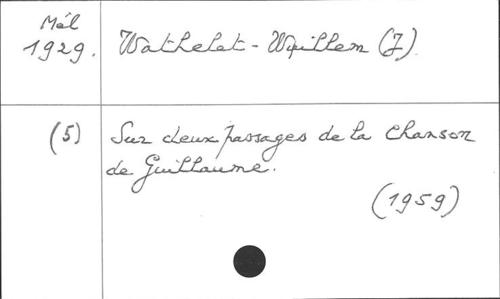 Mél
1929. Wathelet-Willem (J).
(5) Sur deux passages de la Chanson
de Guillaume.
(1959)